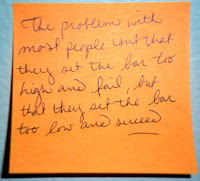 The problem with
most people isn't that
they set the bar too
high and fail, but
that they set the bar
too low and succeed